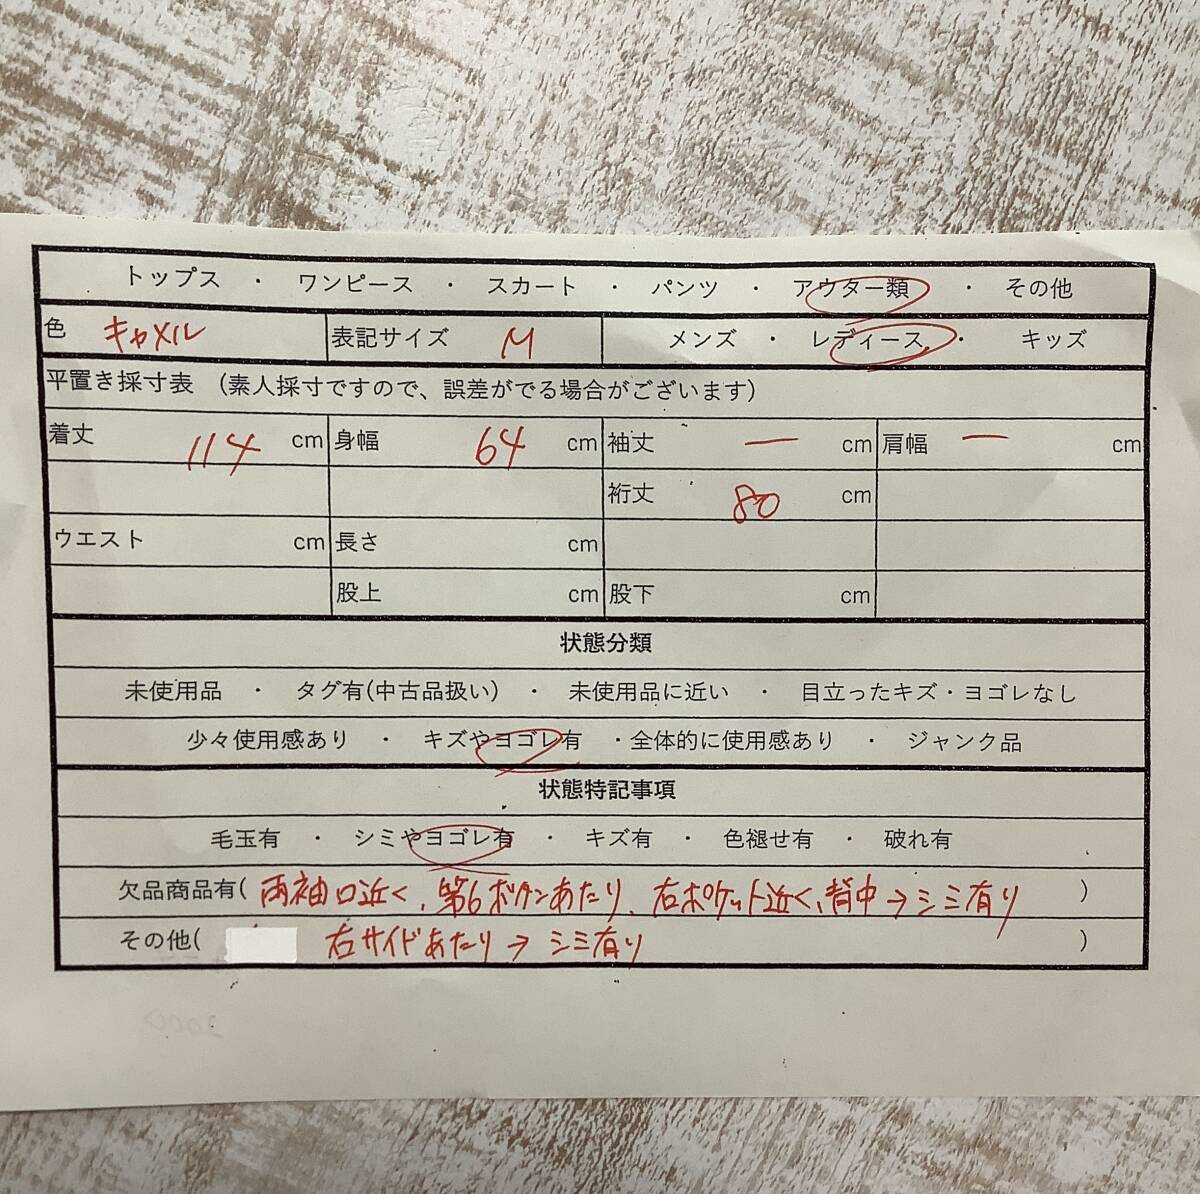 トップス ・ ワンピース ・ スカート ・ パンツ ・ アウター類 ・ その他
色 キャメル 表記サイズ M メンズ ・ レディース ・ キッズ
平置き採寸表 (素人採寸ですので、誤差がでる場合がございます)
着丈 114 cm 身幅 64 cm 袖丈 ー cm 肩幅 ー cm
裄丈 80 cm
ウエスト cm 長さ cm
股上 cm 股下 cm
状態分類
未使用品 ・ タグ有(中古品扱い) ・ 未使用品に近い ・ 目立ったキズ・ヨゴレなし
少々使用感あり ・ キズやヨゴレ有 ・全体的に使用感あり ・ ジャンク品
状態特記事項
毛玉有 ・ シミやヨゴレ有 ・ キズ有 ・ 色褪せ有 ・ 破れ有
欠品商品有( 両袖口近く、第6ボタンあたり、右ポケット近く、背中→シミ有り )
その他( 右サイドあたり→シミ有り )